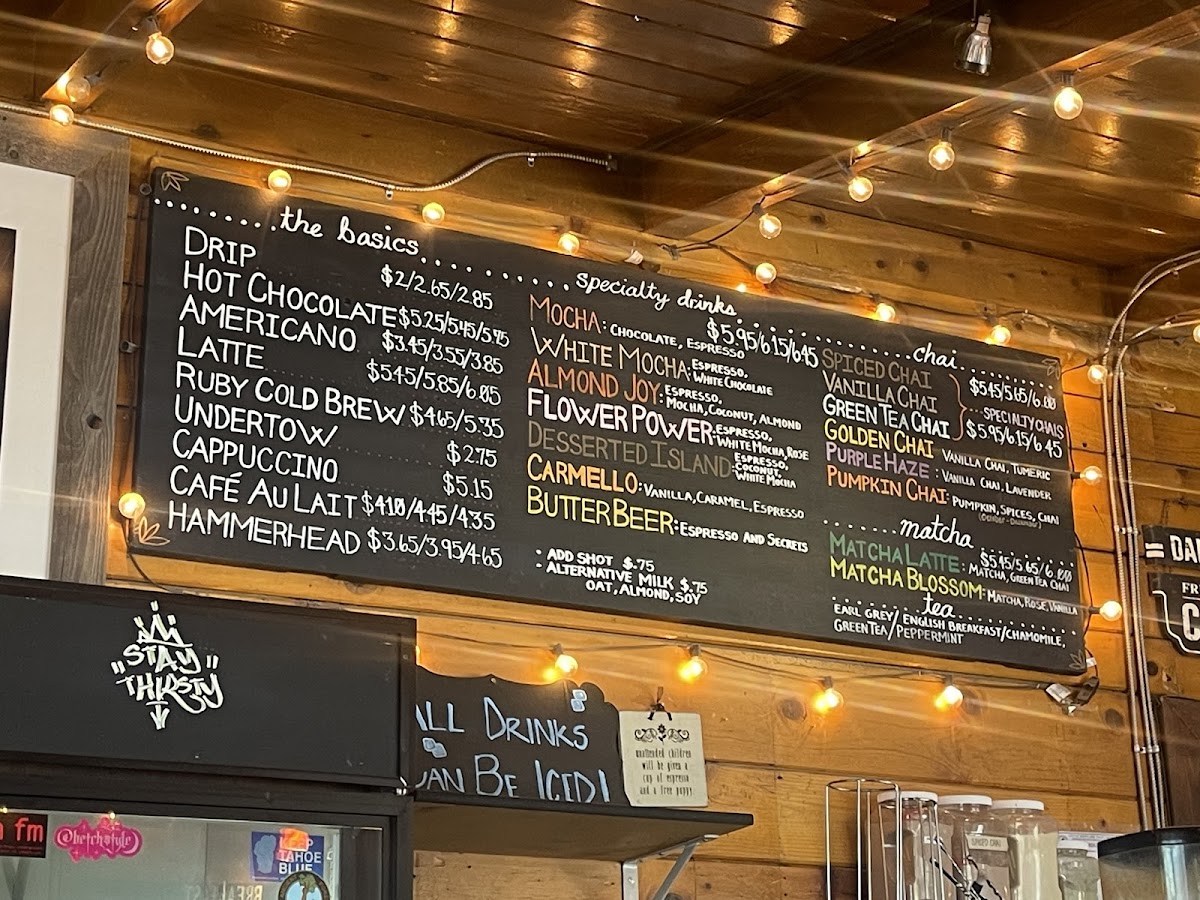 the basics
DRIP $2/2.65/2.85
HOT CHOCOLATE $5.25/5.45/5.75
AMERICANO $3.45/3.55/3.85
LATTE $5.45/5.85/6.05
RUBY COLD BREW $4.65/5.35
UNDERTOW $2.75
CAPPUCCINO $5.15
CAFÉ AU LAIT $4.10/4.45/4.35
HAMMERHEAD $3.65/3.95/4.65
specialty drinks
$5.95/6.15/6.45
MOCHA: CHOCOLATE, ESPRESSO
WHITE MOCHA: ESPRESSO,
WHITE CHOCOLATE
ALMOND JOY: ESPRESSO,
MOCHA, COCONUT, ALMOND
FLOWER POWER: ESPRESSO,
WHITE MOCHA, ROSE
DESSERTED ISLAND: ESPRESSO,
COCONUT,
WHITE MOCHA
CARMELLO: VANILLA, CARAMEL, ESPRESSO
BUTTER BEER: ESPRESSO AND SECRETS
· ADD SHOT $.75
· ALTERNATIVE MILK $.75
OAT, ALMOND, SOY
chai
SPICED CHAI
VANILLA CHAI $5.45/5.65/6.00
GREEN TEA CHAI
SPECIALTY CHAIS
$5.95/6.15/6.45
GOLDEN CHAI VANILLA CHAI, TUMERIC
PURPLE HAZE: VANILLA CHAI, LAVENDER
PUMPKIN CHAI: PUMPKIN, SPICES, CHAI
(OCTOBER - DECEMBER)
matcha
$5.45/5.65/6.00
MATCHA LATTE: MATCHA, GREEN TEA CHAI
MATCHA BLOSSOM: MATCHA, ROSE, VANILLA
tea
EARL GREY/ ENGLISH BREAKFAST/CHAMOMILE,
GREEN TEA/PEPPERMINT
"STAY
THIRSTY"
ALL DRINKS
CAN BE ICED!
unattended children
will be given a
cup of espresso
and a free puppy
fm
@betchstyle
TAHOE
BLUE
SPICED CHAI